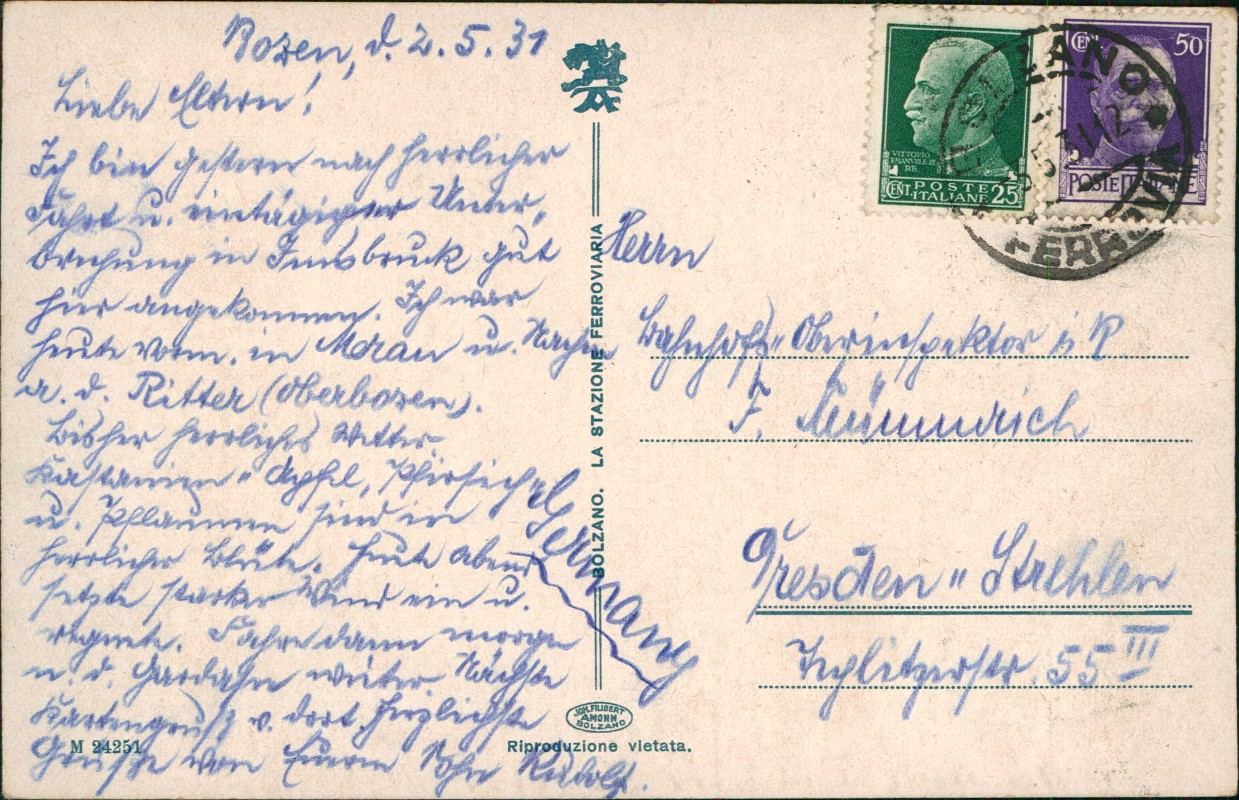 Bozen, d. 2.5.31
Liebe Eltern!
Ich bin gestern nach herrlicher
Fahrt u. eintägiger Unter-
brechung in Innsbruck gut
hier angekommen. Ich war
heute vorm. in Meran u. Nachm
a. d. Ritten (Oberbozen).
Bisher herrliches Wetter.
Kastanien-, Apfel, Pfirsich-
u. Pflaumen sind in
herrlicher Blüte. Heute Abend
setzte starker Wind ein u.
regnete. Fahre dann morgen
n. d. Gardasee weiter. Nächste
Kartengruß v. dort. Herzlichste
Grüße von Eurem Sohn Rudolf.
Germany
BOLZANO. LA STAZIONE FERROVIARIA
JOH. FILIBERT
AMONN
BOLZANO
M 24251
Riproduzione vietata.
VITTORIO
EMANUELE III
RE
POSTE
CENT. ITALIANE 25
CENT 50
POSTE ITALIANE
BOLZANO
FERROVIA
Herrn
Bahnhofs-Oberinspektor i. R.
F.
Dresden-Strehlen
55 III